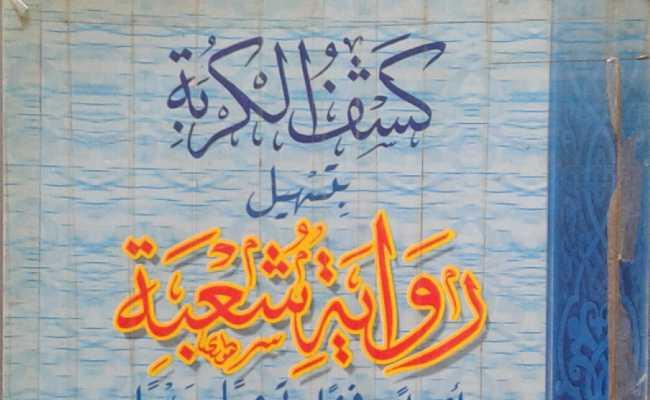 كَشْفُ الْكُرْبَةِ
بِتَسْهِيل
رِوَايَةِ شُعْبَةِ